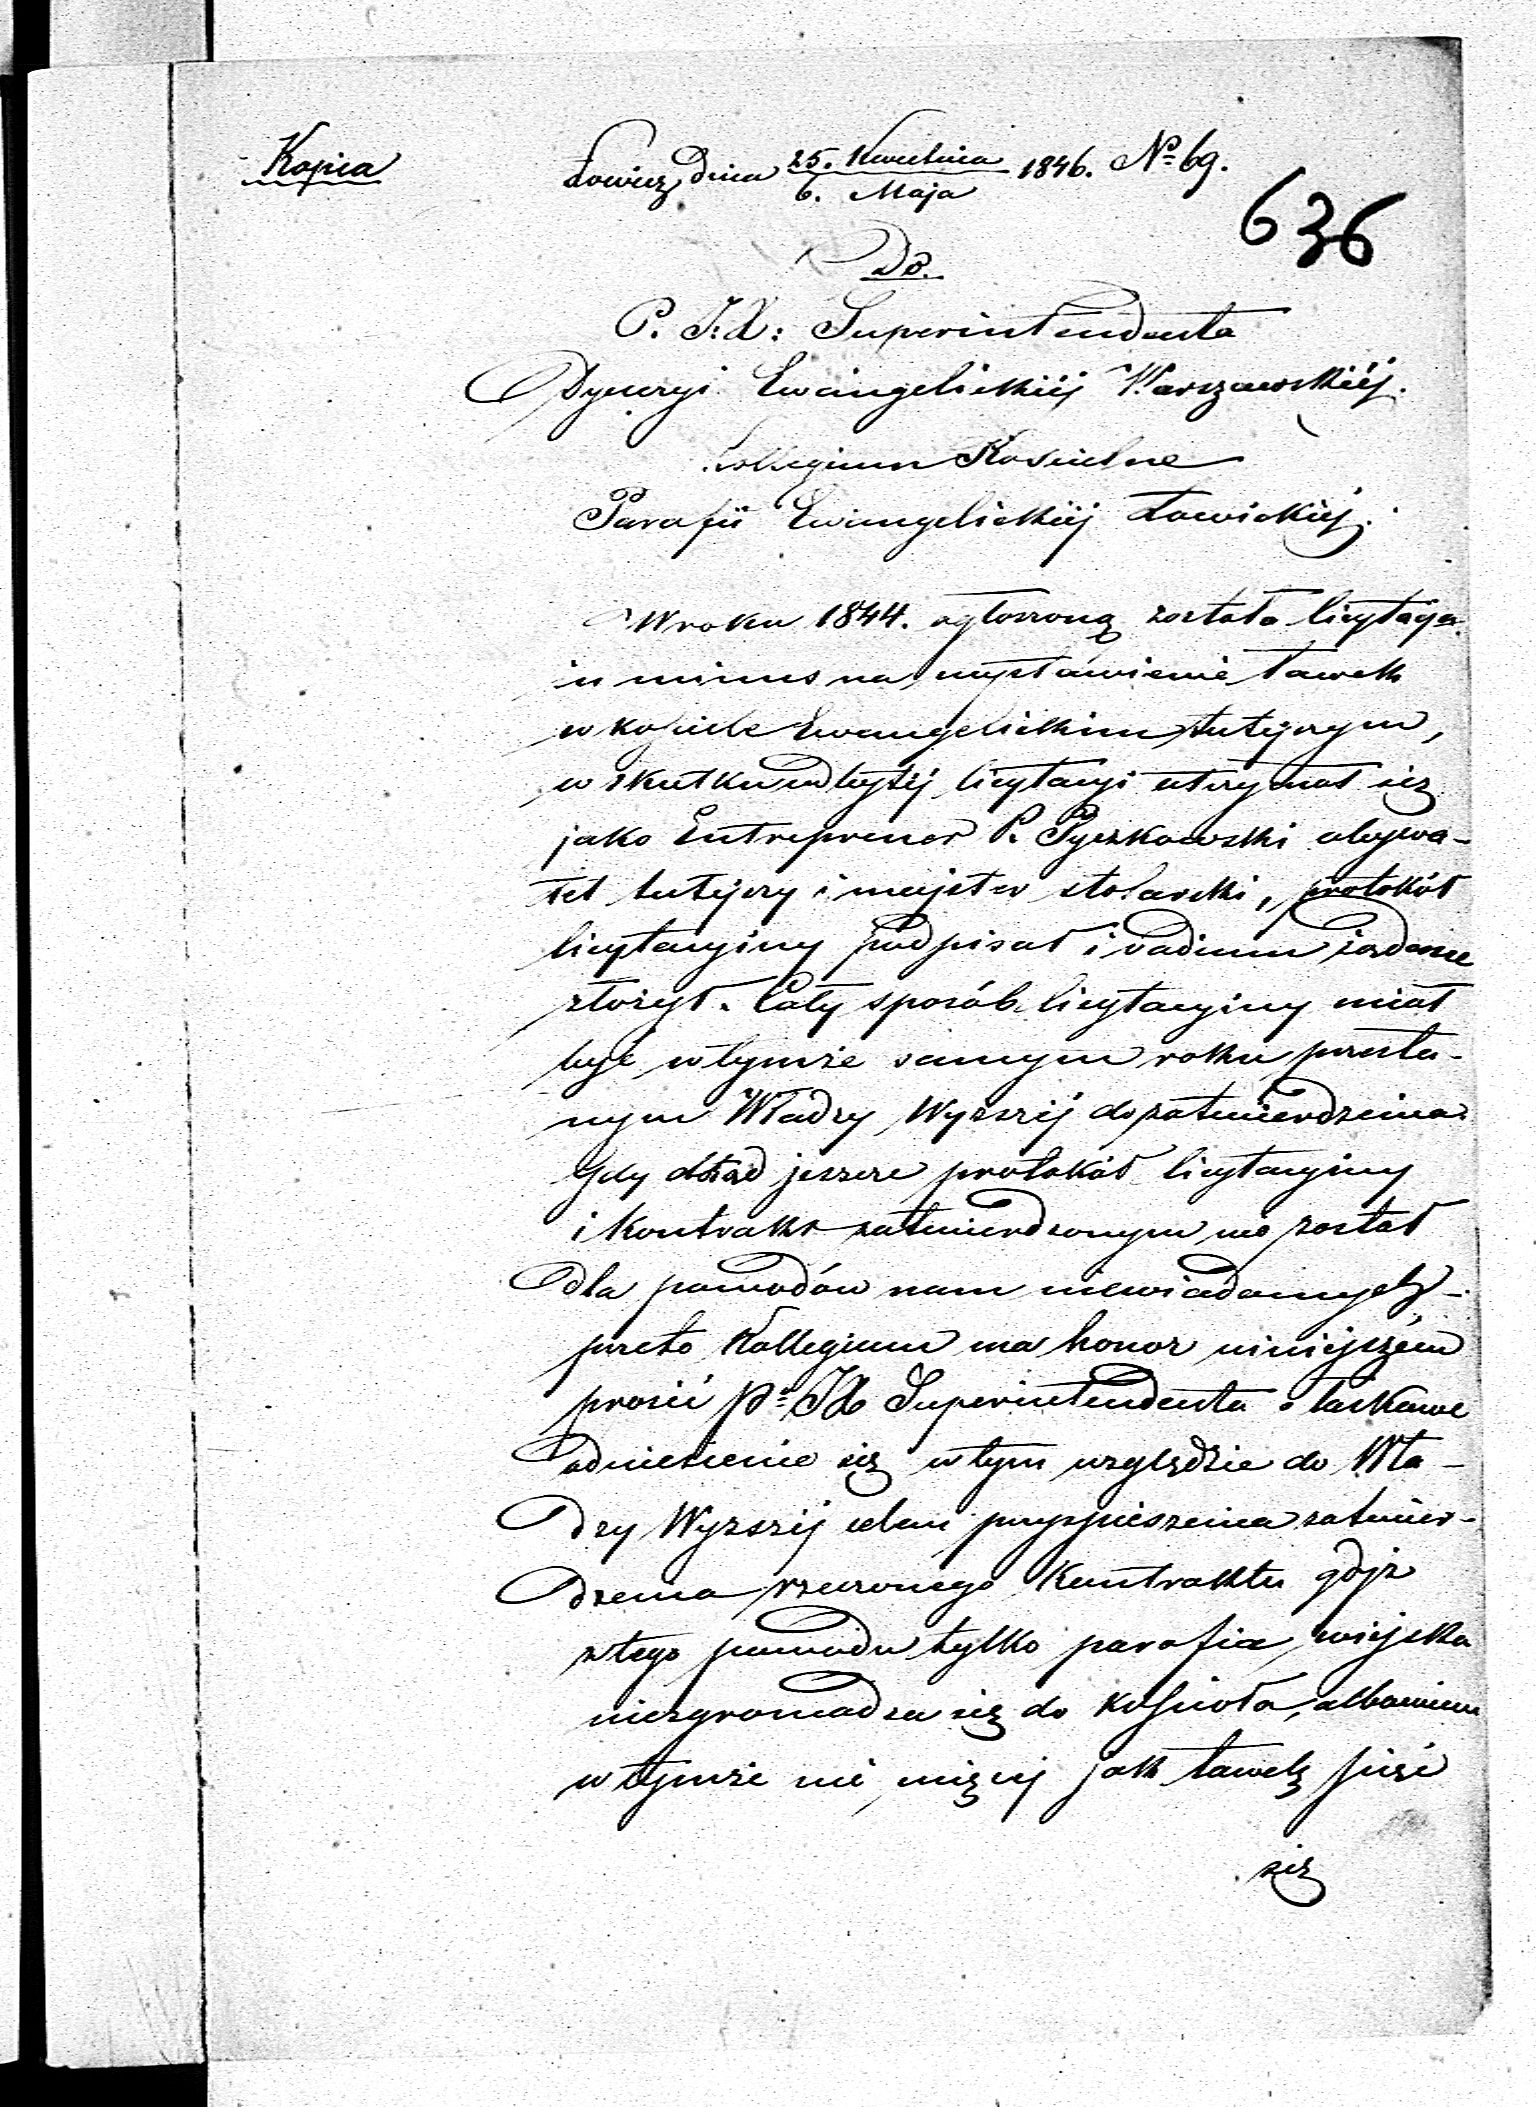 Kopia
Łowicz dnia 25. Kwietnia / 6. Maja 1846. № 69.
636
Do.
P. J. X: Superintendenta
Dyecezyi Ewangelickiéj Warszawskiéj.
Collegium Kościelne
Parafii Ewangelickiéj Łowickiéj.
W roku 1844. ogłoszoną została licytacya
in minus na wystáwienie ławek
w kościele Ewangelickim tutejszym,
w skutku odbytéj licytacyi utrzymał się
jako Entreprener P. Pyszkowski obywa-
tel tutejszy i majster stolarski, protokół
licytacyiny podpisał i vadium żądane
złożył. Cały sposób licytacyiny miał
być w tymże samym roku przesła-
nym Władzy Wyższéj do zatwierdzenia.
Gdy dotąd jeszcze protokół licytacyiny
i kontrakt zatwierdzonym nie został
dla powodów nam niewiadomych -
przeto Kollegium ma honor niniejszém
prosić P. JX Superintendenta o łaskawe
odniesienie się w tym względzie do Wła-
dzy Wyższéj celem przyspieszenia zatwier-
dzenia rzeczonego Kontraktu gdyż
z tego powodu tylko parafia wiejska
niezgromadza się do kościoła, albowiem
w tymże nie więcej jak ławek sześć
się